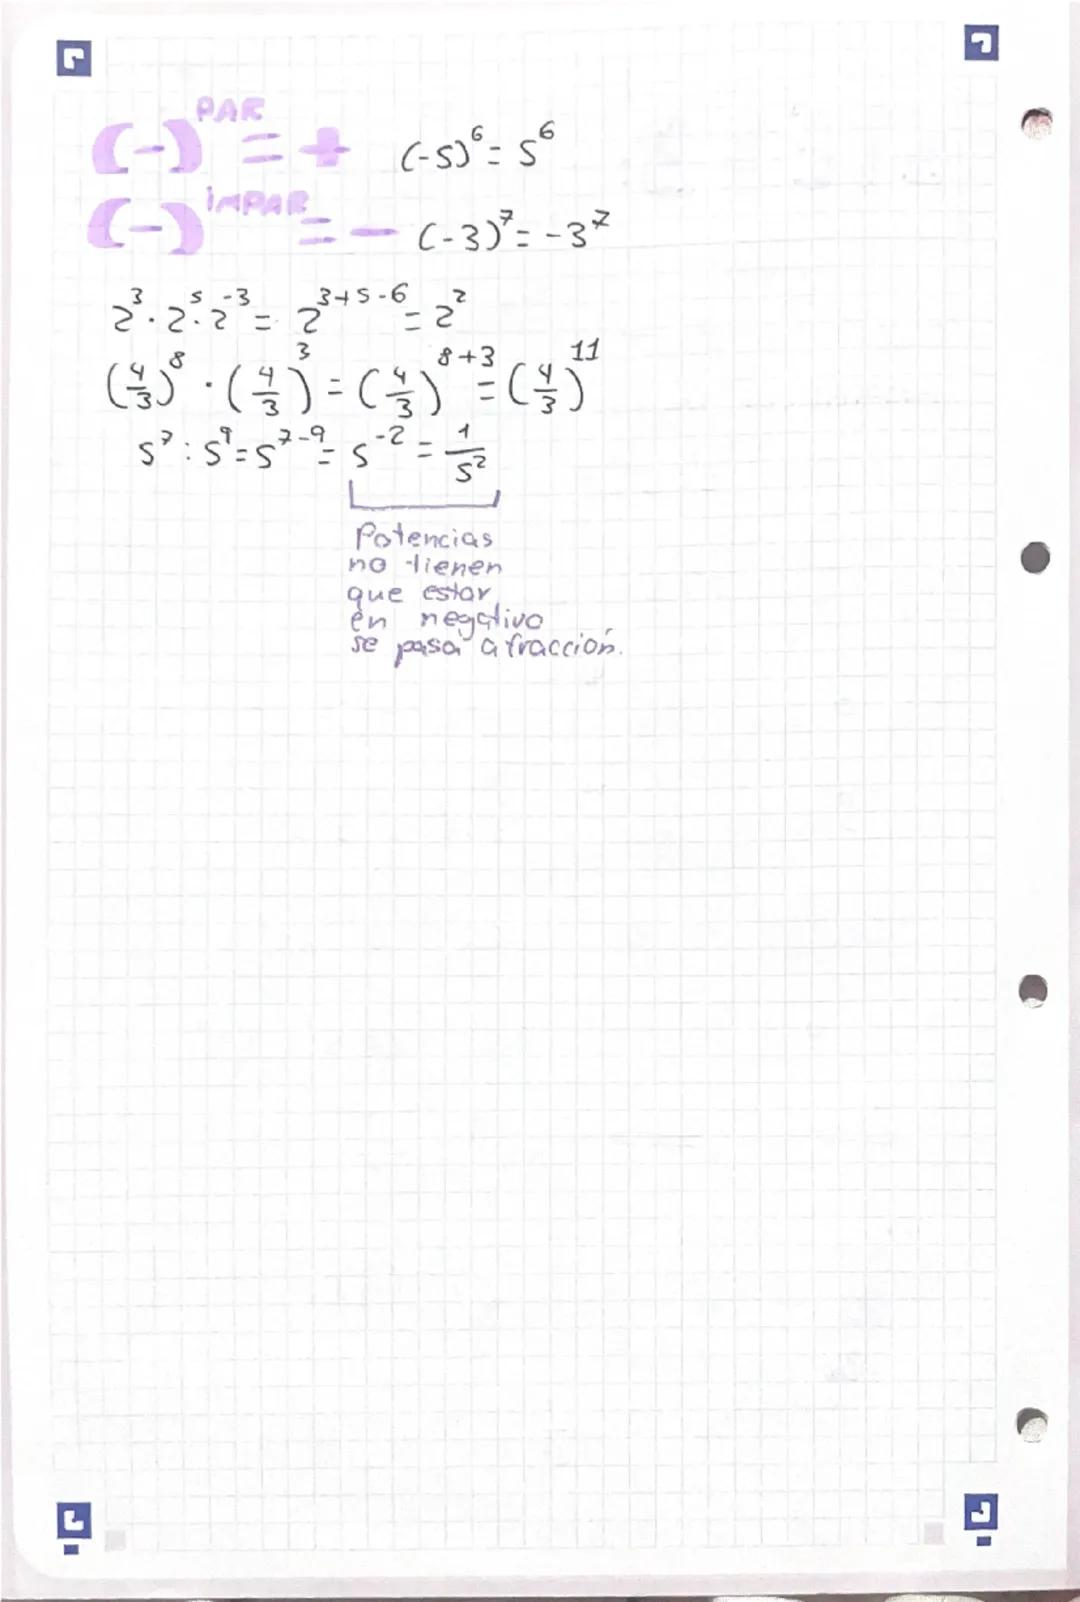 (-)^PAR = + (-5)^6 = 5^6
(-)^IMPAR = - (-3)^7 = -3^7
2^3 · 2^5 · 2^-3 = 2^3+5-6 = 2^2
(4/3)^8 · (4/3)^3 = (4/3)^8+3 = (4/3)^11
5^7 : 5^9 = 5^7-9 = 5^-2 = 1/5^2
Potencias
no tienen
que estar
en negativo
se pasa a fracción.